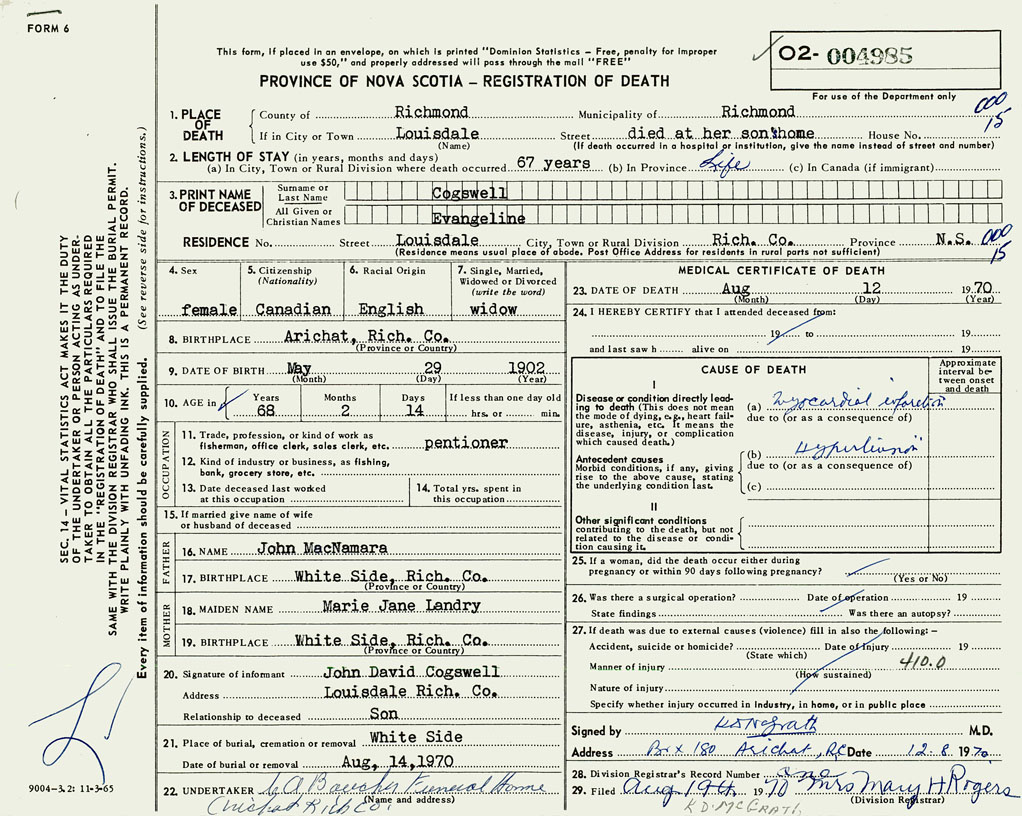 FORM 6
This form, if placed in an envelope, on which is printed "Dominion Statistics – Free, penalty for improper
use $50," and properly addressed will pass through the mail "FREE"
PROVINCE OF NOVA SCOTIA – REGISTRATION OF DEATH
02- 004985
For use of the Department only
000
15
1. PLACE OF DEATH { County of Richmond Municipality of Richmond
If in City or Town Louisdale Street died at her son's home House No.
(Name) (If death occurred in a hospital or institution, give the name instead of street and number)
2. LENGTH OF STAY (in years, months and days)
(a) In City, Town or Rural Division where death occurred 67 years (b) In Province Life (c) In Canada (if immigrant)
3. PRINT NAME OF DECEASED
Surname or Last Name Cogswell
All Given or Christian Names Evangeline
RESIDENCE No. Street Louisdale City, Town or Rural Division Rich. Co. Province N.S. 000
15
(Residence means usual place of abode. Post Office Address for residents in rural parts not sufficient)
4. Sex
female
5. Citizenship
(Nationality)
Canadian
6. Racial Origin
English
7. Single, Married,
Widowed or Divorced
(write the word)
widow
8. BIRTHPLACE Arichat, Rich. Co.
(Province or Country)
9. DATE OF BIRTH May 29 1902
(Month) (Day) (Year)
10. AGE in
Years Months Days If less than one day old
68 2 14 hrs. or min.
OCCUPATION
11. Trade, profession, or kind of work as
fisherman, office clerk, sales clerk, etc. pentioner
12. Kind of industry or business, as fishing,
bank, grocery store, etc.
13. Date deceased last worked
at this occupation
14. Total yrs. spent in
this occupation
15. If married give name of wife
or husband of deceased
FATHER
16. NAME John MacNamara
17. BIRTHPLACE White Side, Rich. Co.
(Province or Country)
MOTHER
18. MAIDEN NAME Marie Jane Landry
19. BIRTHPLACE White Side, Rich. Co.
(Province or Country)
20. Signature of informant John David Cogswell
Address Louisdale Rich. Co.
Relationship to deceased Son
21. Place of burial, cremation or removal White Side
Date of burial or removal Aug, 14,1970
22. UNDERTAKER C A Boucher Funeral Home
(Name and address)
Arichat Rich Co.
MEDICAL CERTIFICATE OF DEATH
23. DATE OF DEATH Aug 12 1970
(Month) (Day) (Year)
24. I HEREBY CERTIFY that I attended deceased from:
19 to 19
and last saw h alive on 19
CAUSE OF DEATH
Approximate
interval be-
tween onset
and death
I
Disease or condition directly lead-
ing to death (This does not mean
the mode of dying, e.g., heart fail-
ure, asthenia, etc. It means the
disease, injury, or complication
which caused death.)
(a) Myocardial infarction
due to (or as a consequence of)
Antecedent causes
Morbid conditions, if any, giving
rise to the above cause, stating
the underlying condition last.
(b) Hypertension
due to (or as a consequence of)
(c)
II
Other significant conditions
contributing to the death, but not
related to the disease or condi-
tion causing it.
25. If a woman, did the death occur either during
pregnancy or within 90 days following pregnancy?
(Yes or No)
26. Was there a surgical operation? Date of operation 19
State findings Was there an autopsy?
27. If death was due to external causes (violence) fill in also the following: –
Accident, suicide or homicide? Date of Injury 19
(State which)
Manner of injury 410.0
(How sustained)
Nature of injury
Specify whether injury occurred in industry, in home, or in public place
Signed by K D McGrath M.D.
Address Box 180 Arichat, RC Date 12.8. 1970
28. Division Registrar's Record Number
29. Filed Aug 19th 1970 Mrs Mary H Rogers
(Division Registrar)
K.D. MCGRATH
SEC. 14 – VITAL STATISTICS ACT MAKES IT THE DUTY
OF THE UNDERTAKER OR PERSON ACTING AS UNDER-
TAKER TO OBTAIN ALL THE PARTICULARS REQUIRED
IN THE "REGISTRATION OF DEATH" AND TO FILE THE
SAME WITH THE DIVISION REGISTRAR WHO SHALL ISSUE THE BURIAL PERMIT.
WRITE PLAINLY WITH UNFADING INK. THIS IS A PERMANENT RECORD.
Every item of information should be carefully supplied. (See reverse side for instructions.)
9004-3.2: 11-3-65